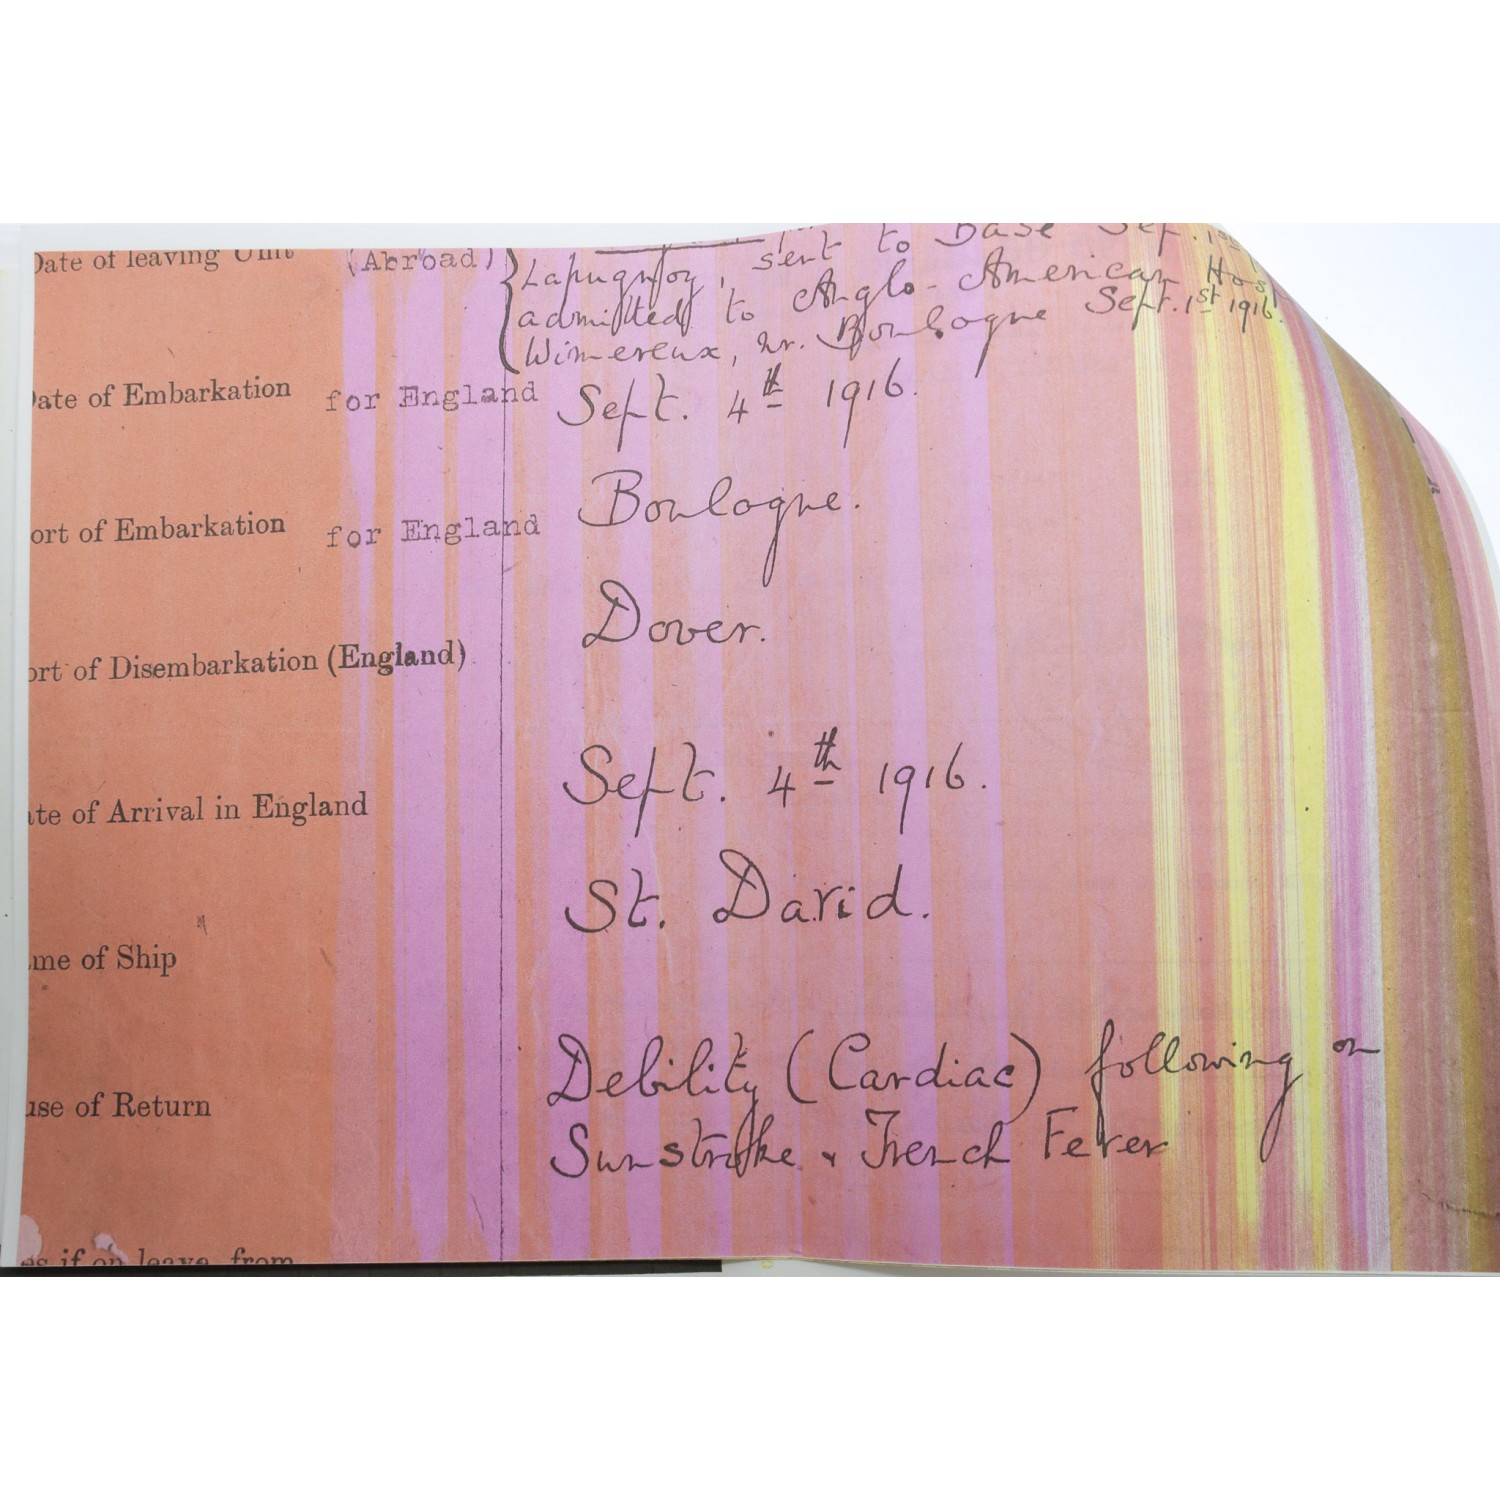 Date of leaving Unit (Abroad)
sent to Base Sep. 1st
Lapugnoy,
admitted to Anglo-American Hos
Wimereux, nr. Boulogne Sept. 1st 1916.
Date of Embarkation for England Sept. 4th 1916.
ort of Embarkation for England Boulogne.
ort of Disembarkation (England) Dover.
ate of Arrival in England Sept. 4th 1916.
me of Ship St. David.
use of Return Debility (Cardiac) following on
Sunstroke & French Fever
es if on leave from